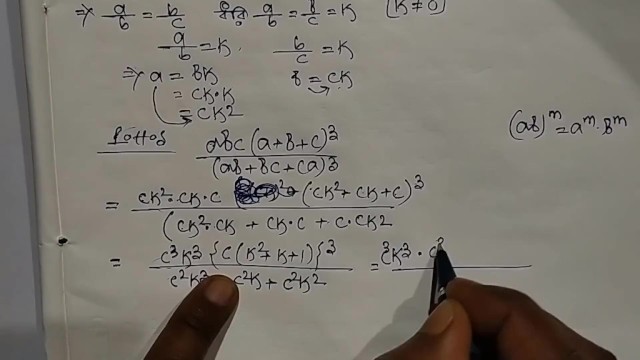 ⇒ a/b = b/c ধরি a/b = b/c = K [K ≠ 0]
a/b = K, b/c = K
⇒ a = bK b = cK
= cK·K
= cK2
(ab)^m = a^m · b^m
abc(a+b+c)^3 / (ab+bc+ca)^3
= cK^2·cK·c (cK^2+cK+c)^3 / (cK^2·cK + cK·c + c·cK2
= c^3K^3 {c(K^2+K+1)}^3 / c^2K^3 c^2K + c^2K^2 = c^3K^3 · c^3